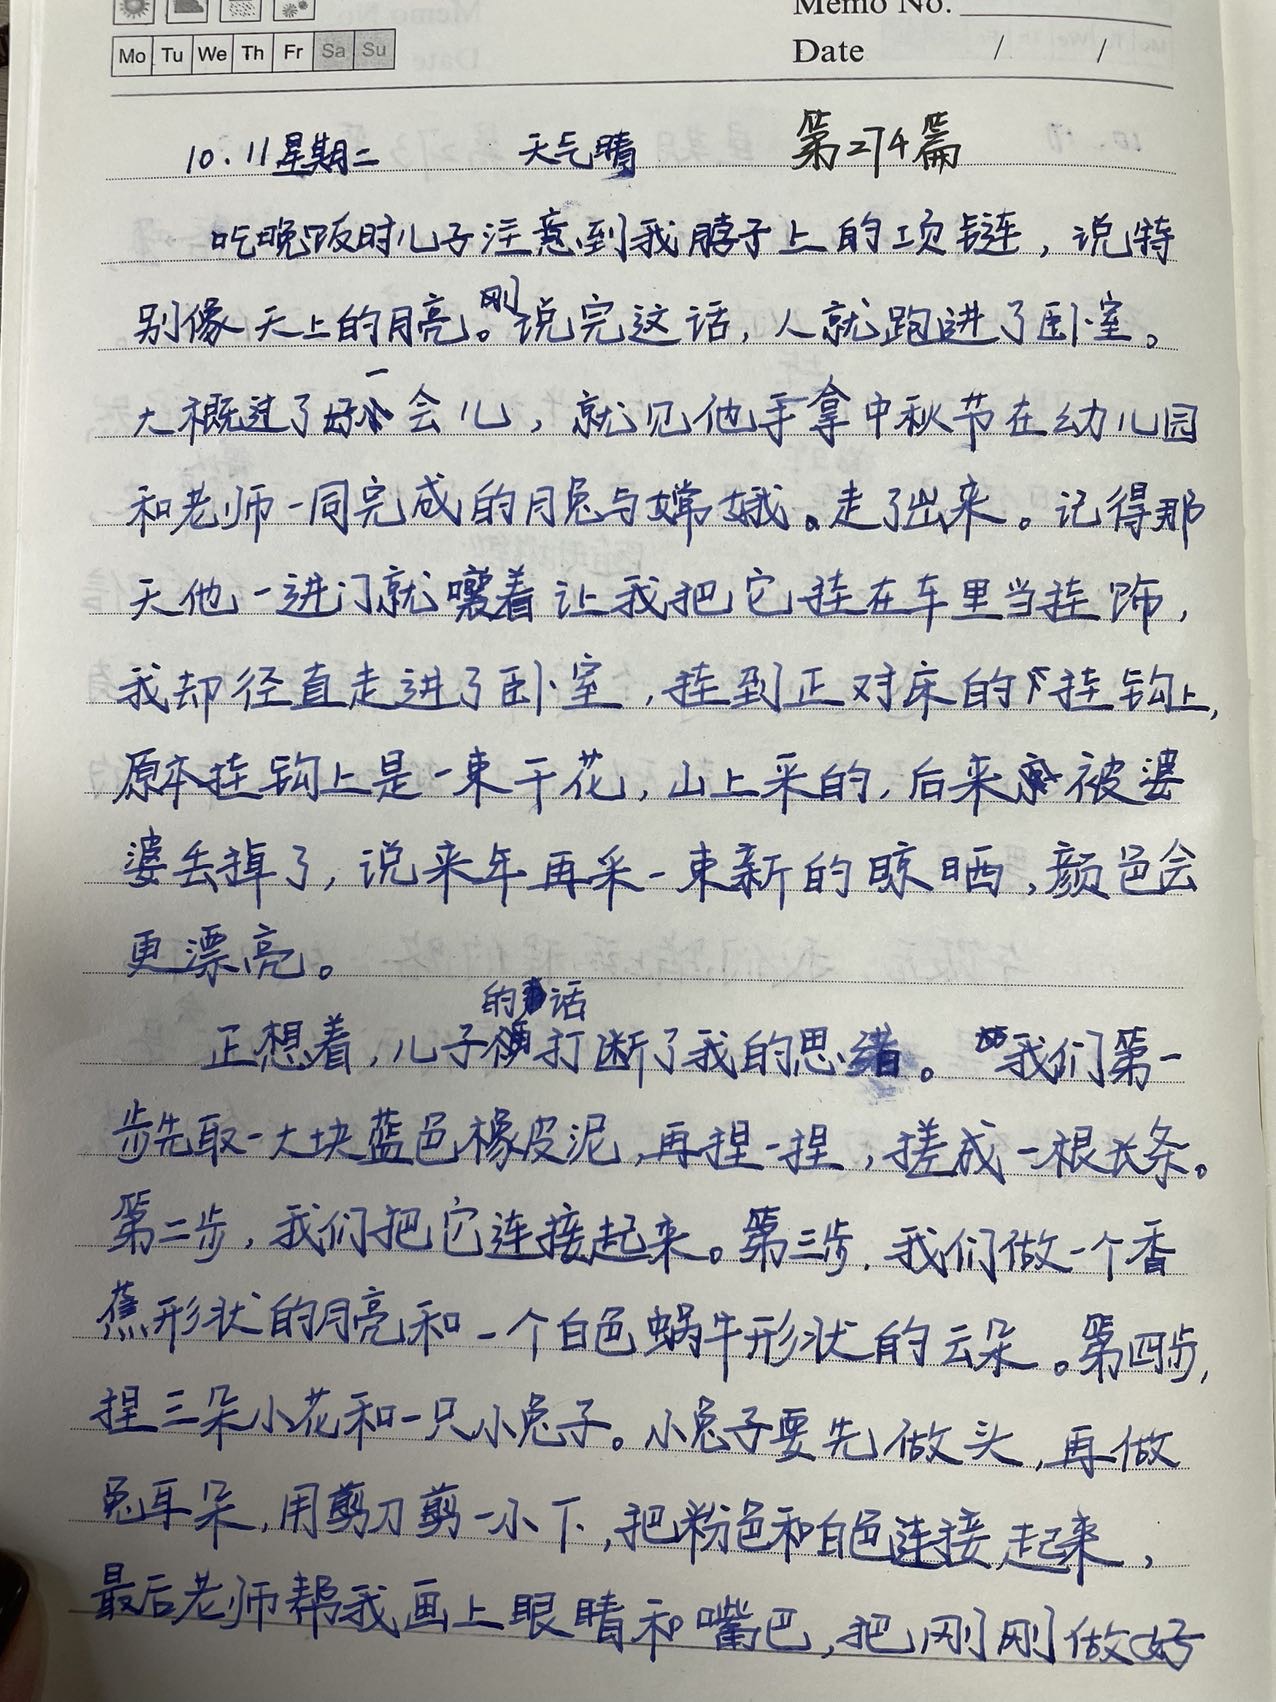 Memo No.
Mo Tu We Th Fr Sa Su
Date / /
10.11星期二 天气晴 第274篇
吃晚饭时儿子注意到我脖子上的项链，说特
别像天上的月亮。刚说完这话，人就跑进了卧室。
大概过了一会儿，就见他手拿中秋节在幼儿园
和老师一同完成的月兔与嫦娥。走了出来。记得那
天他一进门就嚷着让我把它挂在车里当挂饰，
我却径直走进了卧室，挂到正对床的挂钩上，
原本挂钩上是一束干花，山上采的，后来被婆
婆丢掉了，说来年再采一束新的晾晒，颜色会
更漂亮。
正想着，儿子的话打断了我的思绪。“我们第一
步先取一大块蓝色橡皮泥，再捏一捏，搓成一根长条。
第二步，我们把它连接起来。第三步，我们做一个香
蕉形状的月亮和一个白色蜗牛形状的云朵。第四步，
捏三朵小花和一只小兔子。小兔子要先做头，再做
兔耳朵，用剪刀剪一小下，把粉色和白色连接起来，
最后老师帮我画上眼睛和嘴巴，把刚刚做好